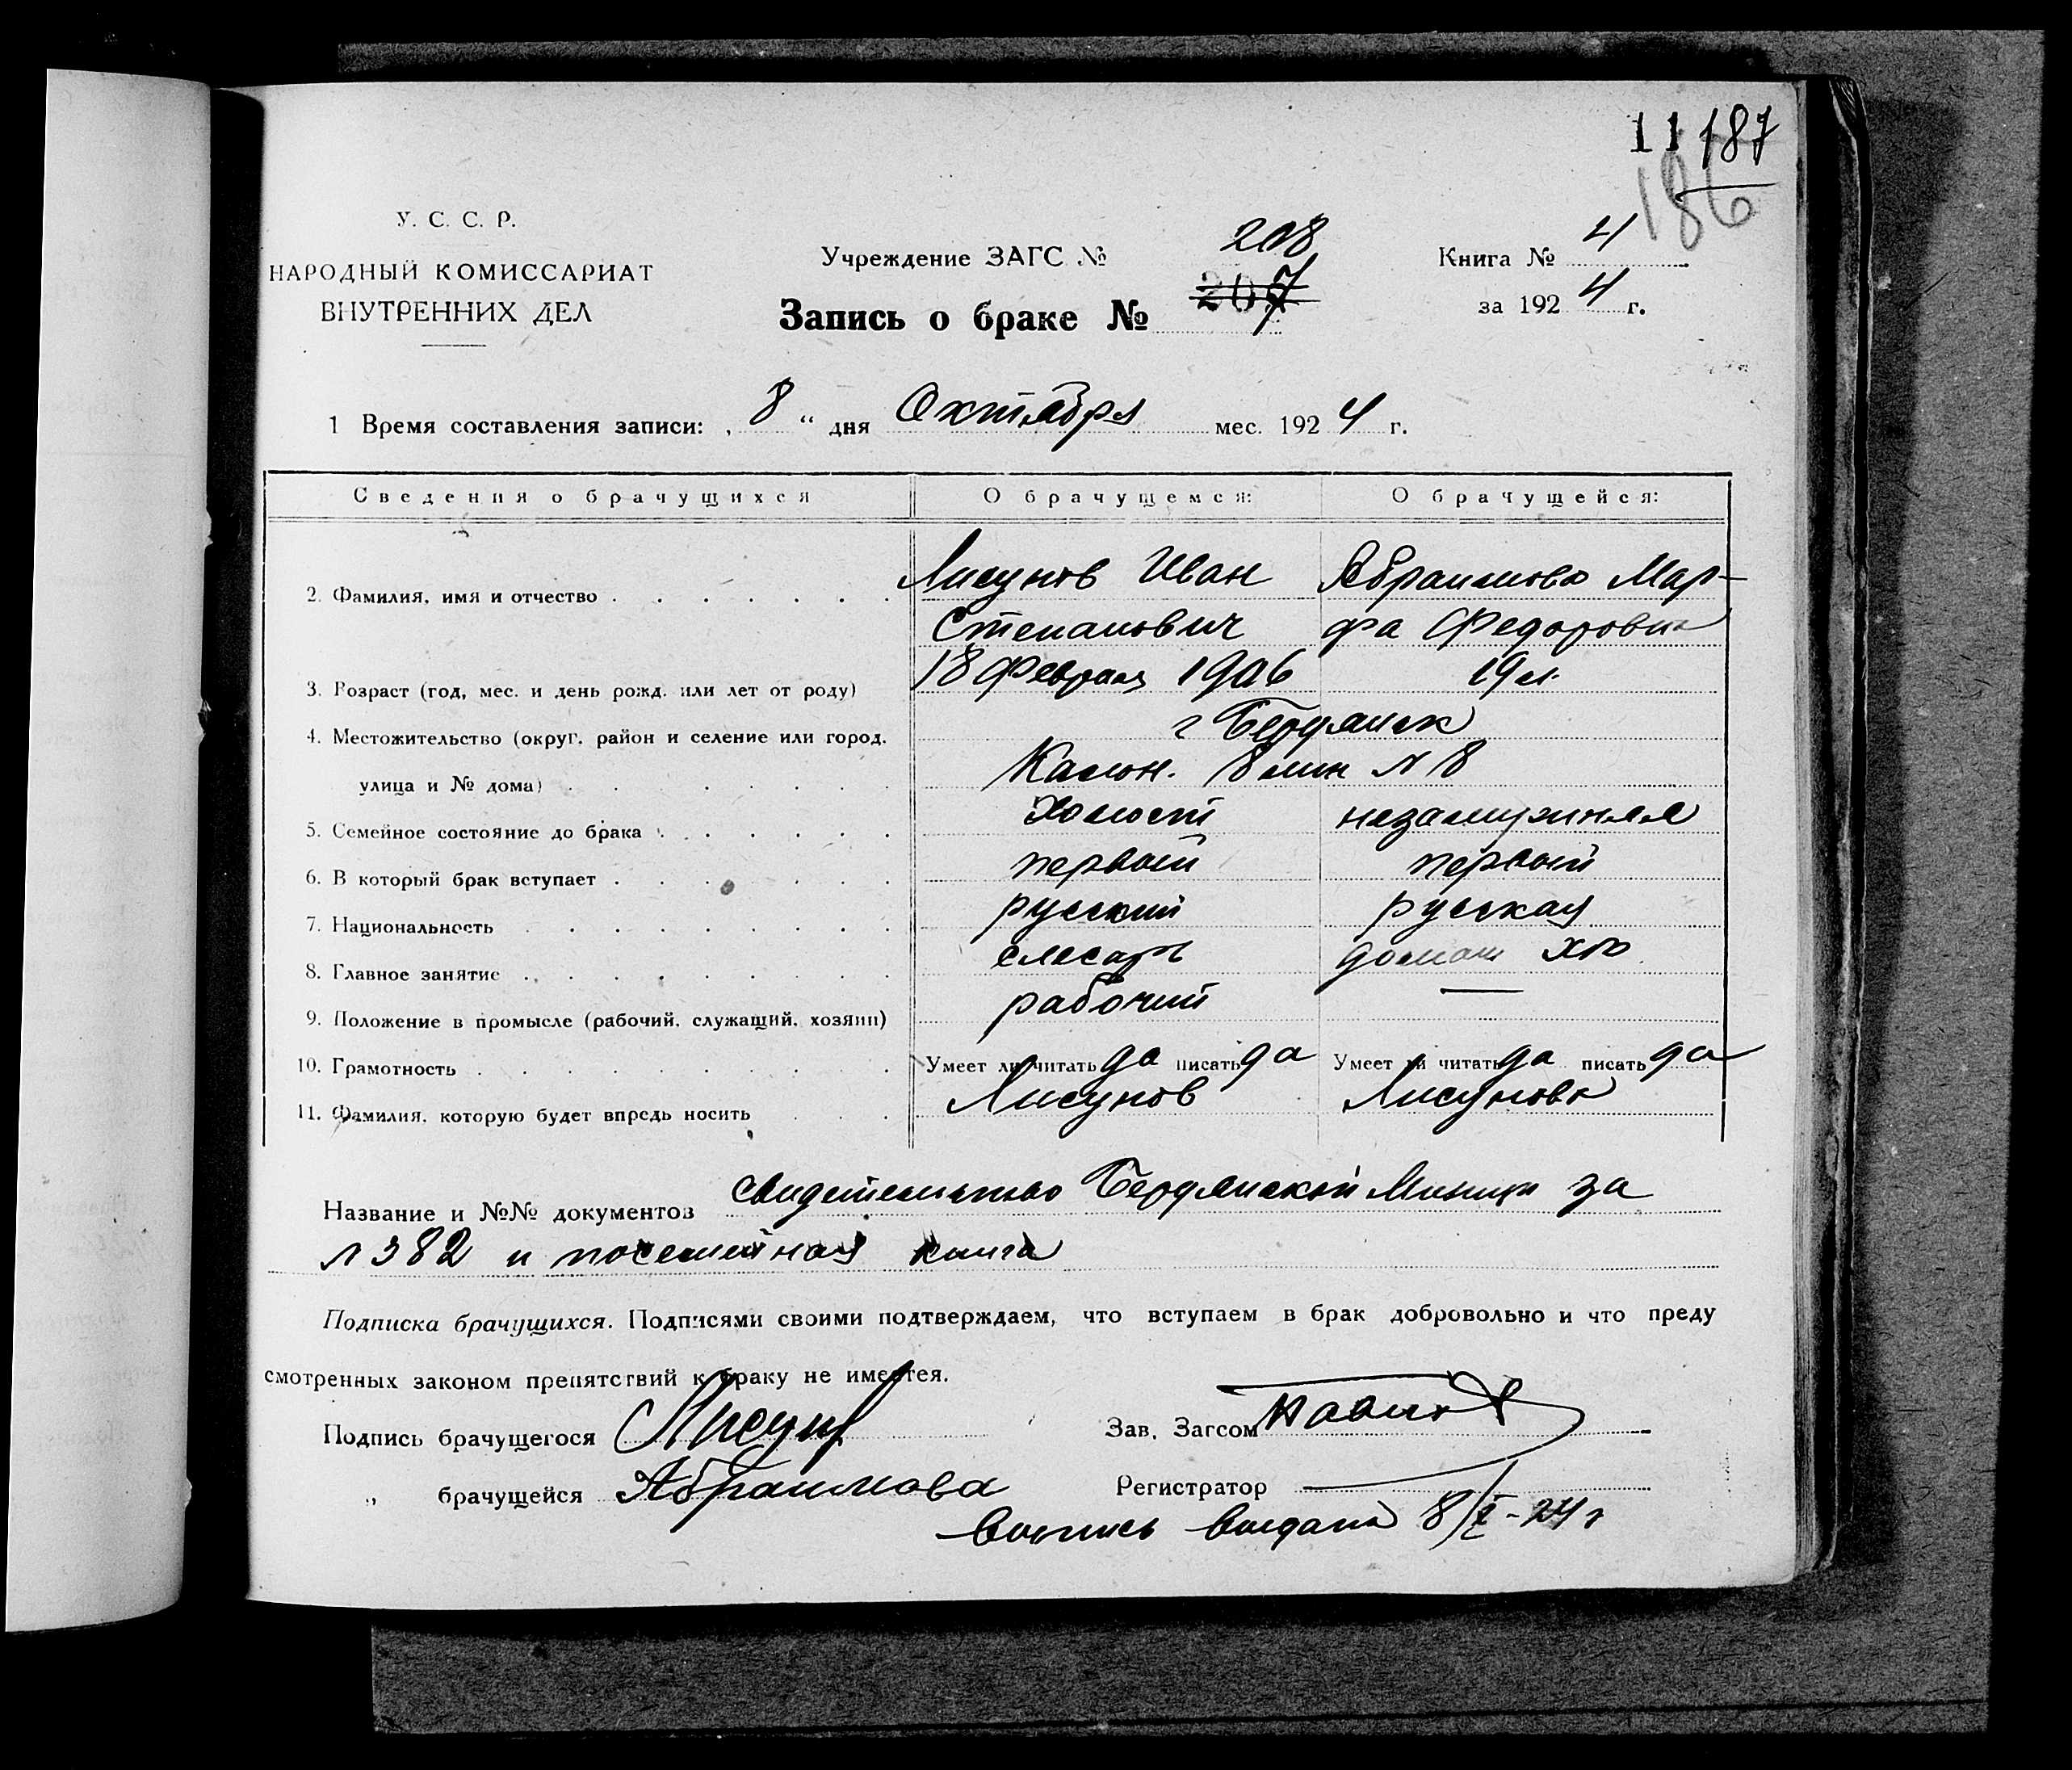 11 187
186
У. С. С. Р.
НАРОДНЫЙ КОМИССАРИАТ
ВНУТРЕННИХ ДЕЛ
Учреждение ЗАГС №
208
Запись о браке № 207
Книга № 4
за 192 4 г.
1 Время составления записи: „ 8 “ дня Октября мес. 192 4 г.
Сведения о брачущихся О брачущемся: О брачущейся:
2. Фамилия, имя и отчество Лисунов Иван Абраимова Мар-
Степанович фа Федоровна
3. Возраст (год, мес. и день рожд. или лет от роду) 18 февраля 1906 19 л.
4. Местожительство (округ, район и селение или город, г Бердянск
улица и № дома) Колон. 8 лин № 8
5. Семейное состояние до брака холост незамужняя
6. В который брак вступает первый первый
7. Национальность русский русская
8. Главное занятие слесарь домаш хоз
9. Положение в промысле (рабочий, служащий, хозяин) рабочий —
10. Грамотность Умеет ли читать да писать да Умеет ли читать да писать да
11. Фамилия, которую будет впредь носить Лисунов Лисунова
Название и №№ документов свидетельство Бердянской Милиции за
№ 382 и посемейная книга
Подписка брачущихся. Подписями своими подтверждаем, что вступаем в брак добровольно и что преду
смотренных законом препятствий к браку не имеется.
Подпись брачущегося Лисун
Зав. Загсом
„ брачущейся Абраимова
Регистратор —
выпись выдана 8/X-24 г